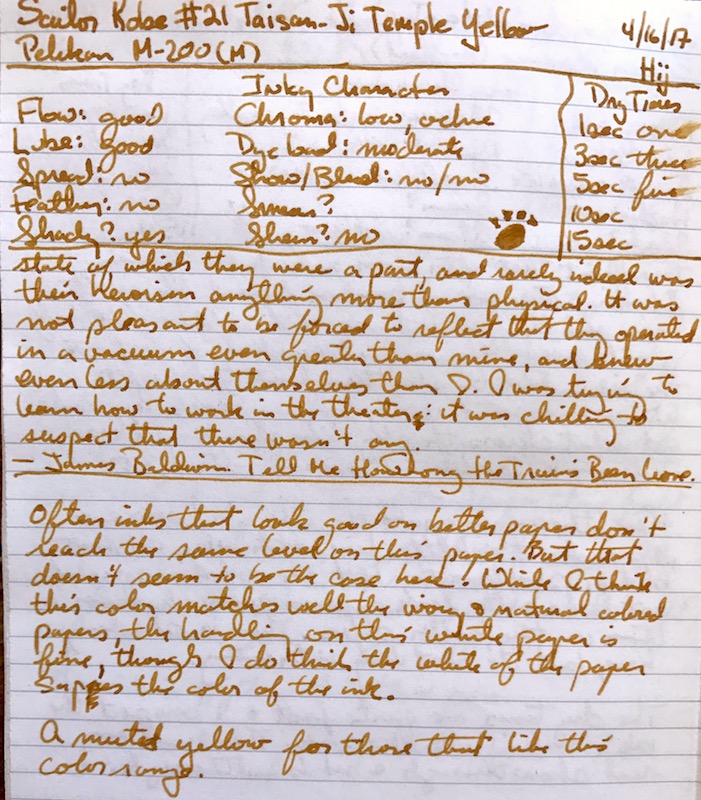 Sailor Kobe #21 Taisan-Ji Temple Yellow
Pelikan M-200 (M)
4/16/17
Hij
Inky Characters
Flow: good Chroma: low, ochre
Lube: good Dye load: moderate
Spread: no Show/Bleed: no/no
Feather: no Smear?
Shady? yes Sheen? no
Dry Times
1sec one
3sec three
5sec five
10sec
15sec
state of which they were a part, and rarely indeed was
their heroism anything more than physical. It was
not pleasant to be forced to reflect that they operated
in a vacuum even greater than mine, and knew
even less about themselves than I. I was trying to
learn how to work in the theater: it was chilling to
suspect that there wasn't any.
— James Baldwin. Tell Me How Long the Train's Been Gone.
Often inks that look good on better paper don't
reach the same level on this paper. But that
doesn't seem to be the case here. While I think
this color matches well the ivory & natural colored
papers, the handling on this white paper is
fine, though I do think the white of the paper
the color of the ink.
A muted yellow for those that like this
color range.